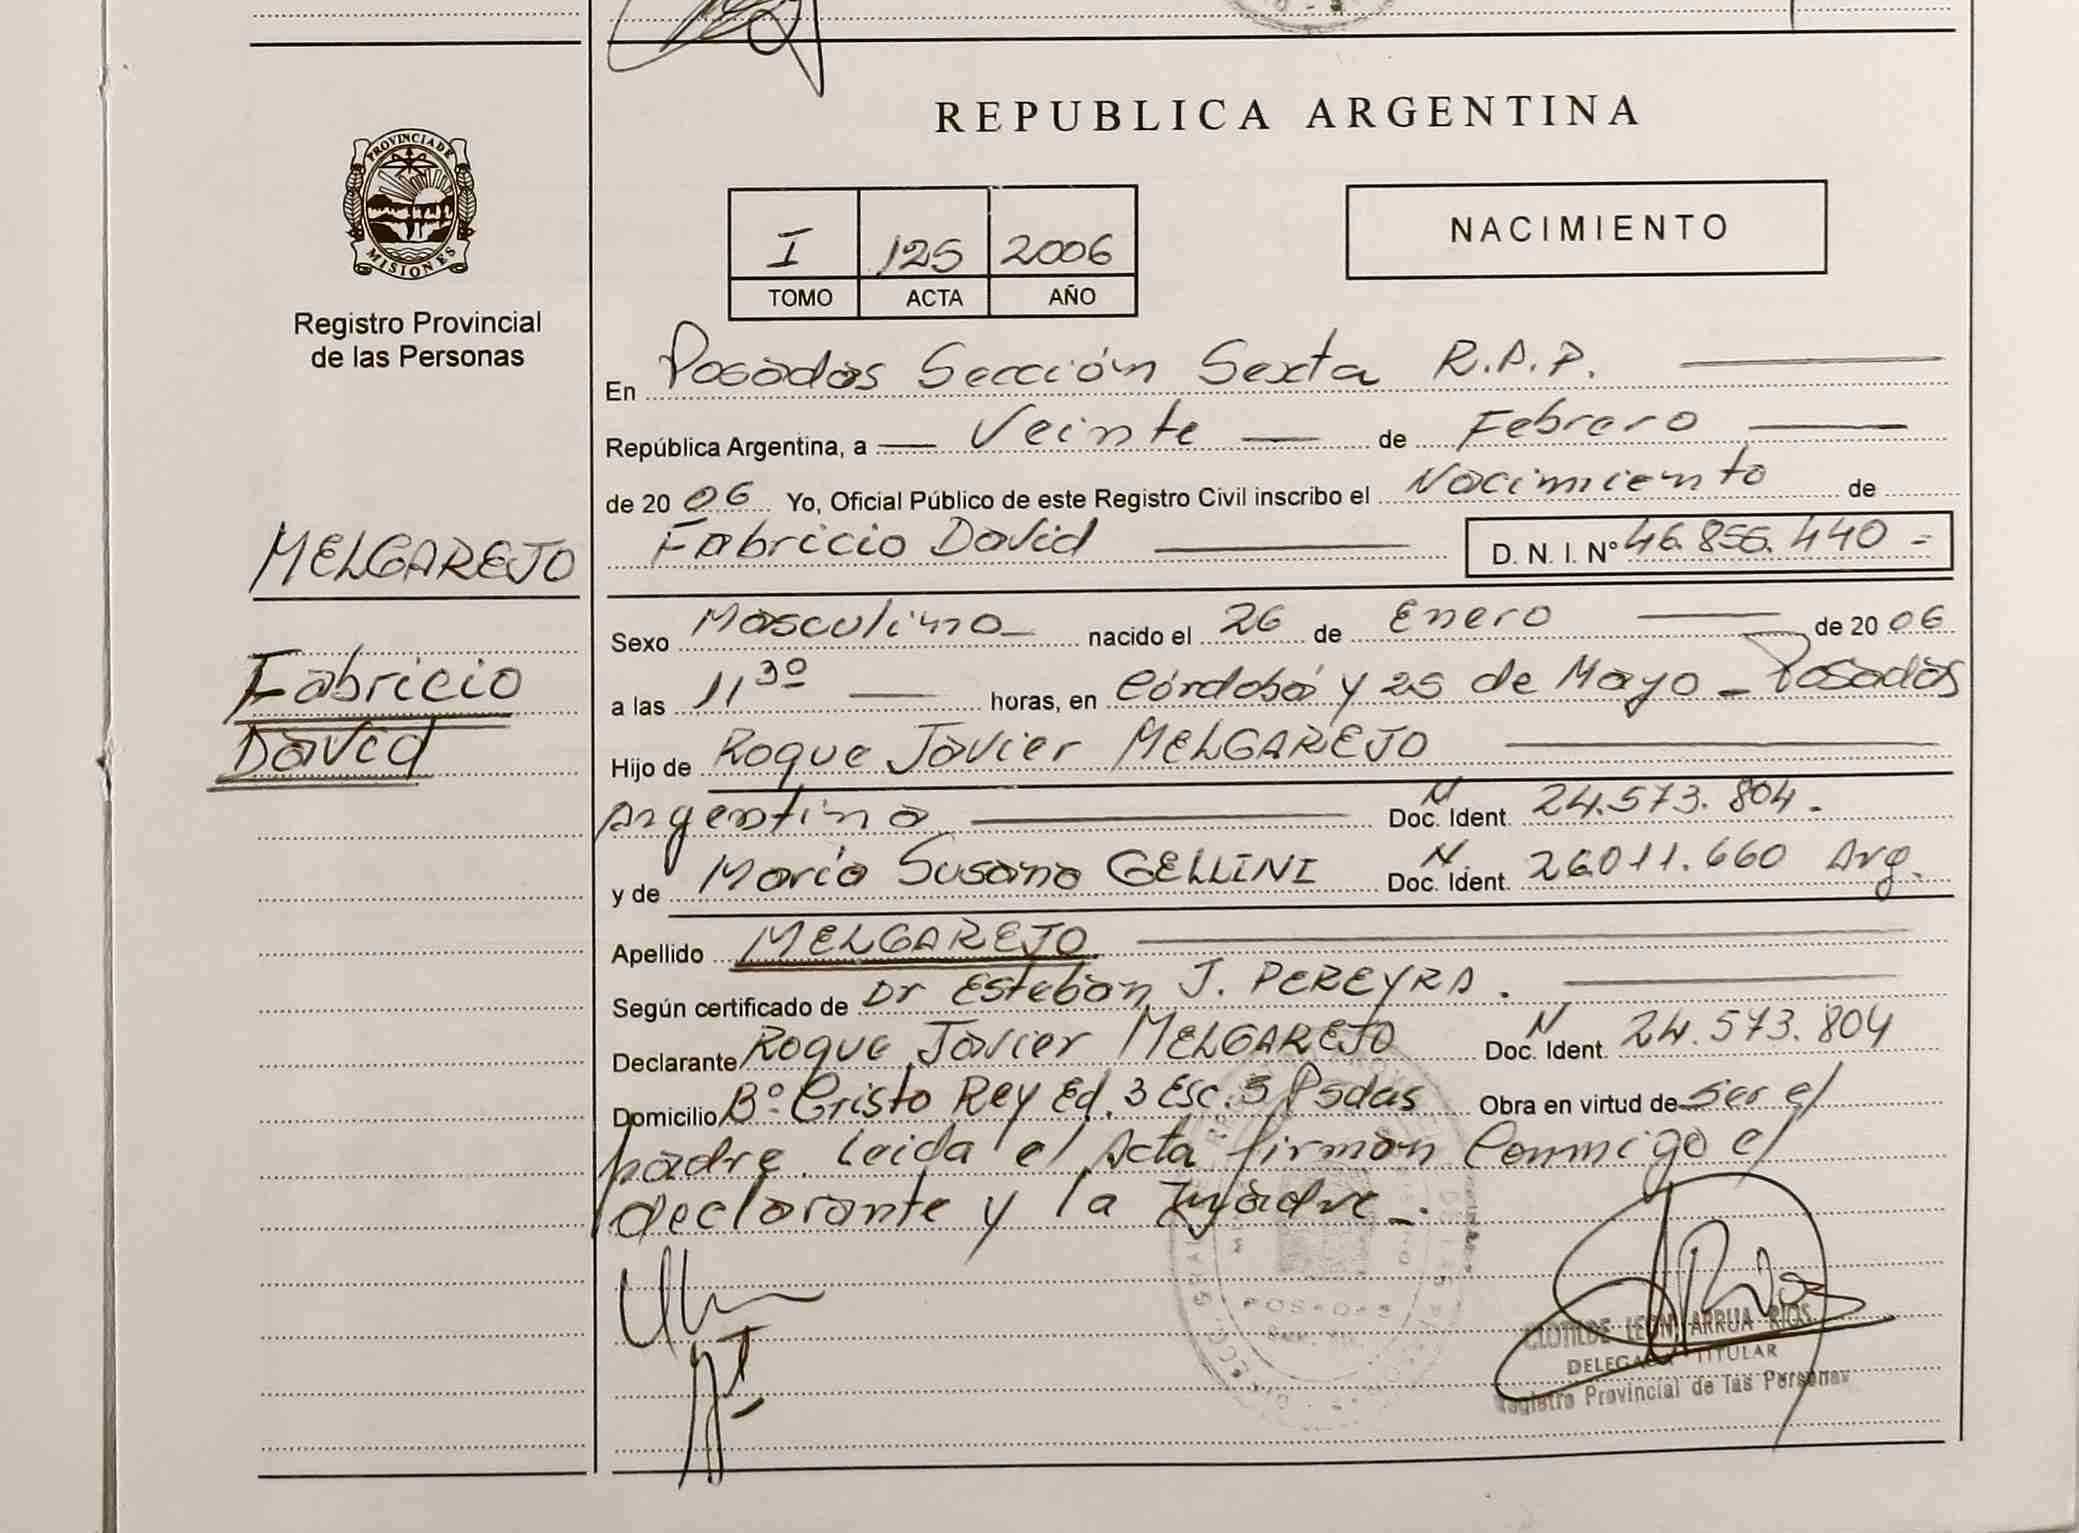 REPUBLICA ARGENTINA
PROVINCIA DE
MISIONES
Registro Provincial
de las Personas
I 125 2006
TOMO ACTA AÑO
NACIMIENTO
En Posadas Sección Sexta R.P.P.
República Argentina, a Veinte de Febrero
de 2006 Yo, Oficial Público de este Registro Civil inscribo el Nacimiento de
Fabricio David D. N. I. Nº 46.856.440 =
MELGAREJO
Fabricio
David
Sexo Masculino nacido el 26 de Enero de 2006
a las 11 30 horas, en Córdoba y 25 de Mayo - Posadas
Hijo de Roque Javier MELGAREJO
Argentino Doc. Ident. N 24.573.804.
y de María Susana GELLINI Doc. Ident. N. 26011.660 Arg.
Apellido MELGAREJO
Según certificado de Dr Esteban J. PEREYRA.
Declarante Roque Javier MELGAREJO Doc. Ident. N 24.573.804
Domicilio Bº Cristo Rey Ed. 3 Esc. 5 Psdas Obra en virtud de ser el
padre. Leida el Acta firman Conmigo el
declarante y la Madre.
CLOTILDE LEON ARRUA RIOS
DELEGADA TITULAR
Registro Provincial de las Personas